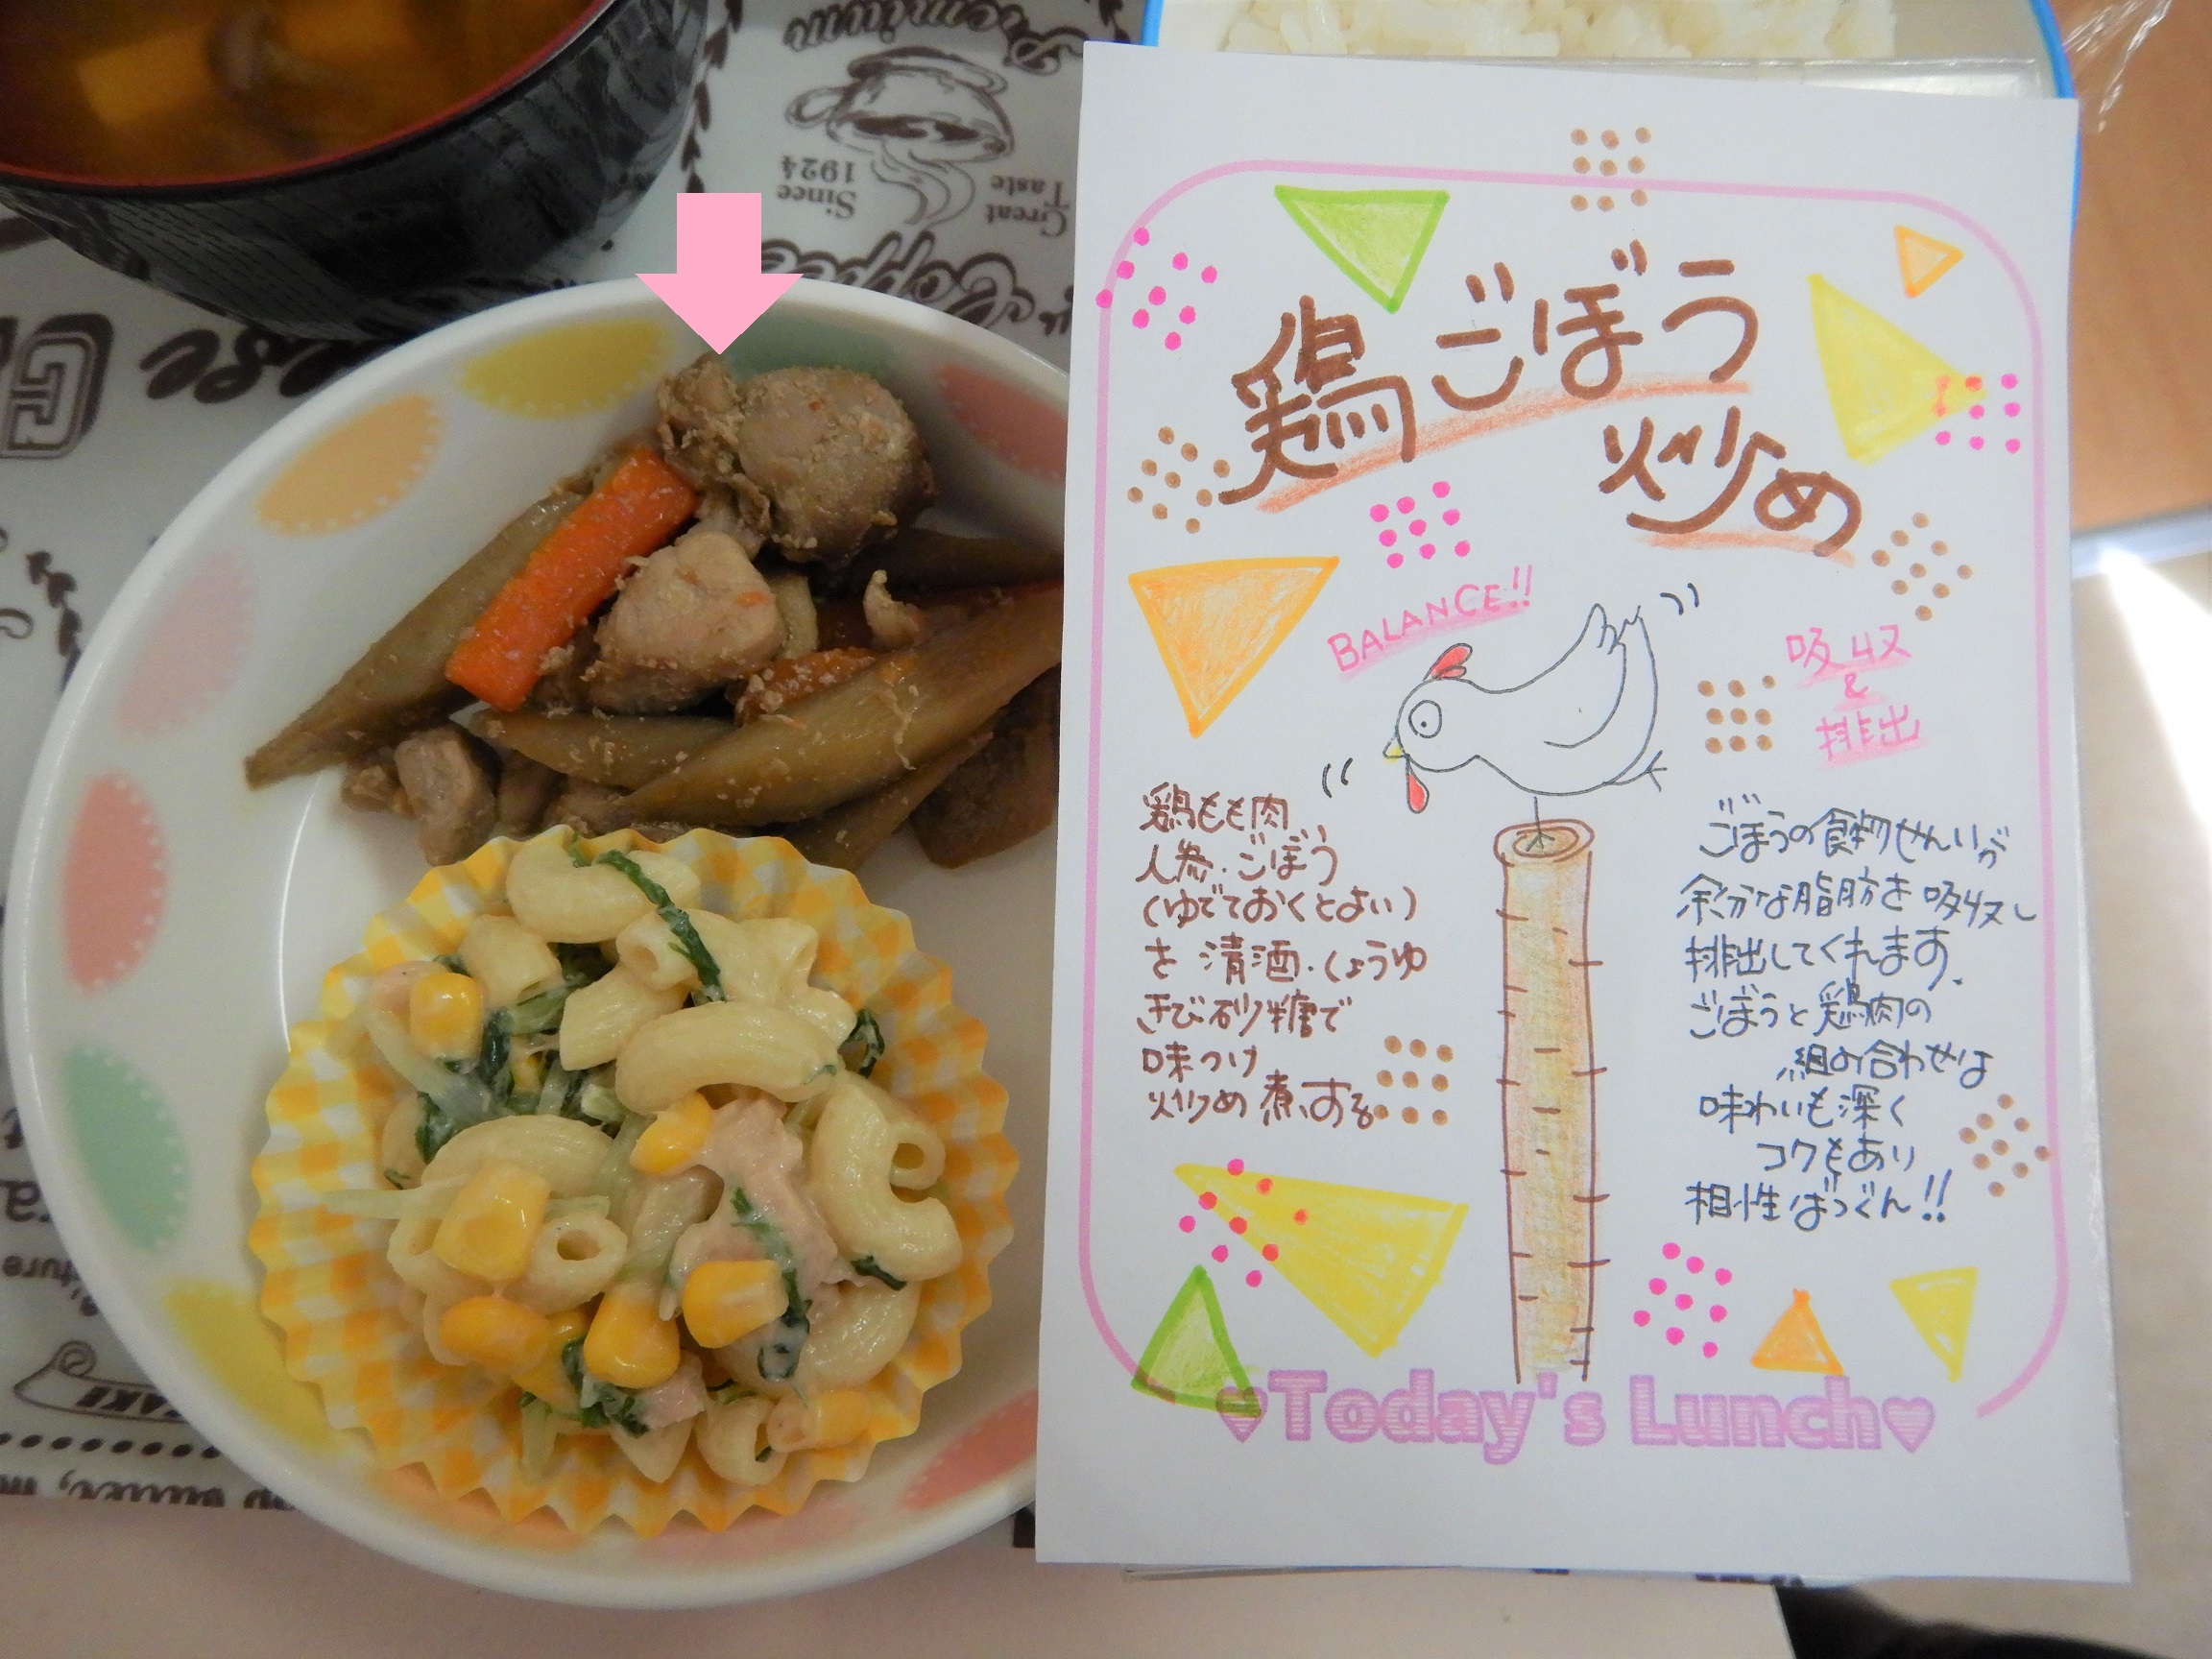 Premium
Since
1924
Great
Taste
Coffee
鶏ごぼう
炒め
BALANCE!!
吸収
&
排出
鶏もも肉
人参・ごぼう
(ゆでておくとよい)
を 清酒・しょうゆ
きび砂糖で
味つけ
炒め煮する
ごぼうの食物せんいが
余分な脂肪を吸収し
排出してくれます。
ごぼうと鶏肉の
組み合わせは
味わいも深く
コクもあり
相性ばつぐん!!
♥Today's Lunch♥